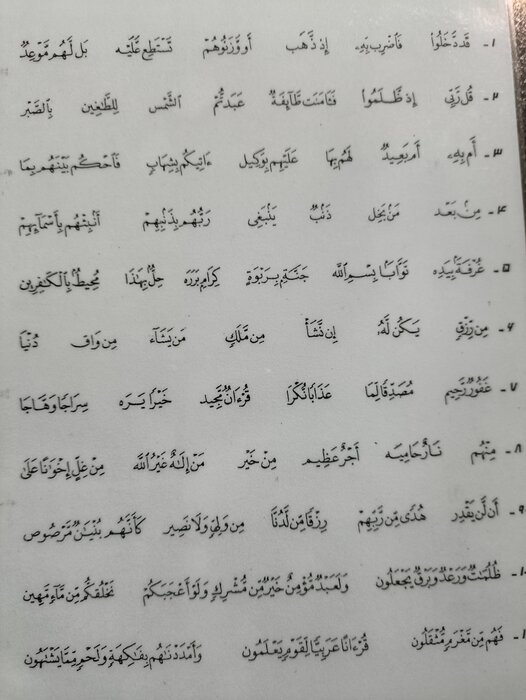 ١- قَد دَّخَلُوا فَاضْرِب بِّهِ إِذ ذَّهَب أَو وَّزَنُوهُمْ تَسْتَطِع عَّلَيْهِ بَل لَّهُم مَّوْعِدٌ
٢- قُل رَّبِّي إِذ ظَّلَمُوا فَـَٔامَنَت طَّآئِفَةٌ عَبَدتُّمْ الشَّمْس لِلطَّٰغِينَ بِالصَّبْرِ
٣- أَم بِهِ أَم بَعِيدٌ لَهُم بِهَا عَلَيْهِم بِوَكِيلٍ ءَاتِيكُم بِشِهَابٍ فَاحْكُم بَيْنَهُم بِمَا
۴- مِنۢ بَعْد مَنۢ بَخِل ذَنۢب يَنۢبَغِي رَبُّهُم بِذَنۢبِهِمْ أَنۢبِئْهُم بِأَسْمَآئِهِمْ
۵- غُرْفَةَۢ بِيَدِهِ تَوَّابَۢا بِسْمِ اللَّه جَنَّةِۭ بِرَبْوَةٍ كِرَامِۭ بَرَرَةٍ حِلُّۢ بِهَٰذَا مُحِيطُۢ بِالْكَٰفِرِين
۶- مِن رِّزْقٍ يَكُن لَّهُ إِن نَّشَأْ مِن مَّلَكٍ مَن يَشَآء مِن وَاق دُنْيَا
٧- غَفُورٌ رَّحِيم مُصَدِّقًا لِّمَا عَذَابًا نُّكْرًا قُرْءَانٌ مَّجِيد خَيْرًا يَرَه سِرَاجًا وَهَّاجًا
٨- مِنْهُم نَارٌ حَامِيَه أَجْرٌ عَظِيم مِنْ خَيْر مَنْ إِلَٰهٌ غَيْرُ اللَّه مِنْ غِلٍّ إِخْوَانًا عَلَىٰ
٩- أَن لَّن يَقْدِر هُدًى مِّن رَّبِّهِمْ رِزْقًا مِّن لَّدُنَّا مِن وَلِيٍّ وَلَا نَصِير كَأَنَّهُم بُنْيَٰنٌ مَّرْصُوص
١٠- ظُلُمَٰتٌ وَرَعْدٌ وَبَرْقٌ يَجْعَلُون وَلَعَبْدٌ مُّؤْمِنٌ خَيْرٌ مِّن مُّشْرِكٍ وَلَوْ أَعْجَبَكُمْ نَخْلُقكُّم مِّن مَّآءٍ مَّهِين
فَهُم مِّن مَّغْرَمٍ مُّثْقَلُون قُرْءَانًا عَرَبِيًّا لِّقَوْمٍ يَعْلَمُون وَأَمْدَدْنَٰهُم بِفَٰكِهَةٍ وَلَحْمٍ مِّمَّا يَشْتَهُون